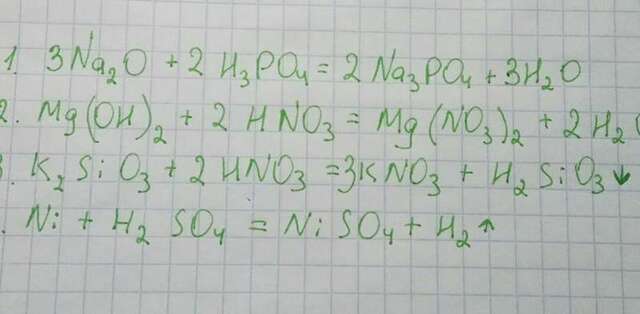 1. 3Na₂O + 2 H₃PO₄ = 2 Na₃PO₄ + 3H₂O
2. Mg(OH)₂ + 2 HNO₃ = Mg(NO₃)₂ + 2H₂
. K₂SiO₃ + 2HNO₃ = 3KNO₃ + H₂SiO₃↓
. Ni + H₂SO₄ = NiSO₄ + H₂↑